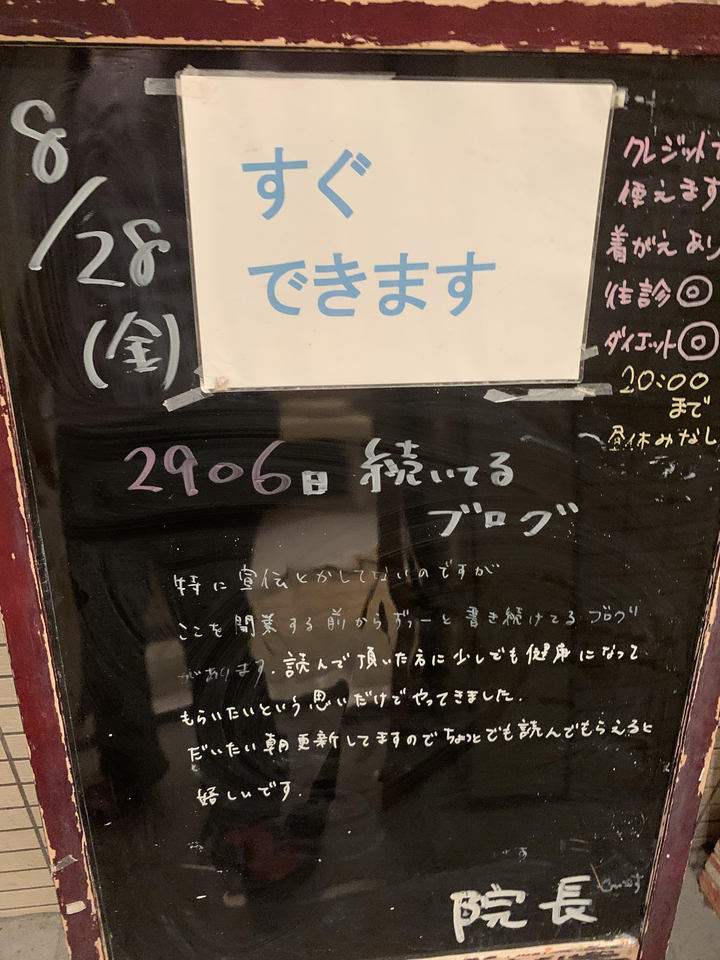 8/28
(金)
すぐ
できます
クレジット
使えます
着がえあり
往診◎
ダイエット◎
20:00
まで
昼休みなし
2906日 続いてる
ブログ
特に宣伝とかしてないのですが
ここを開業する前からずぅーと書き続けてるブログ
があります。読んで頂いた方に少しでも健康になって
もらいたいという思いだけでやってきました。
だいたい朝更新してますのでちょっとでも読んでもらえると
嬉しいです。
院長